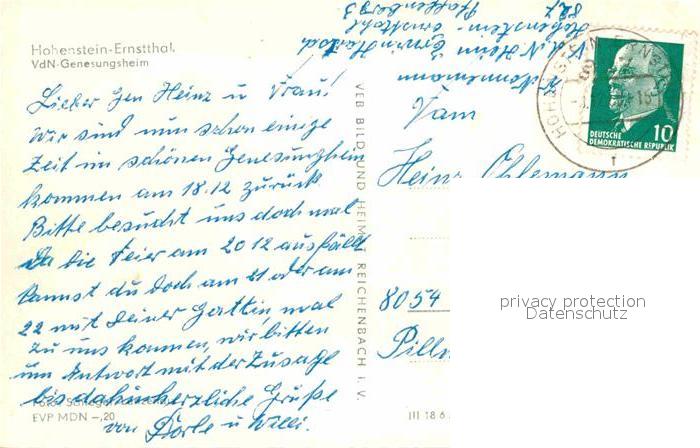 Hohenstein-Ernstthal.
VdN-Genesungsheim
Lieber Gen Heinz u Frau!
Wir sind nun schon einige
Zeit im schönen Genesungsheim
kommen am 18.12 zurück
Bitte besucht uns doch mal
Da die Feier am 20 12 ausfällt
kannst du doch am 21 oder am
22 mit deiner Gattin, mal
zu uns kommen, wir bitten
um Antwort mit der Zusage
bis dahin herzliche Grüße
von Dorle u Willi.
EVP MDN -,20
VEB BILD UND HEIMAT REICHENBACH I. V.
Hohenstein-
Ernstthal
DEUTSCHE
DEMOKRATISCHE REPUBLIK
10
Fam
Heinz
8054
Pilln
III 18 6
privacy protection
Datenschutz